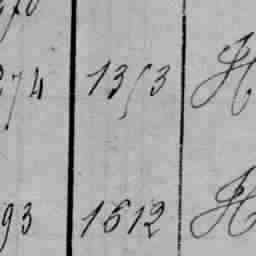 274 1353 H
93 1512 H